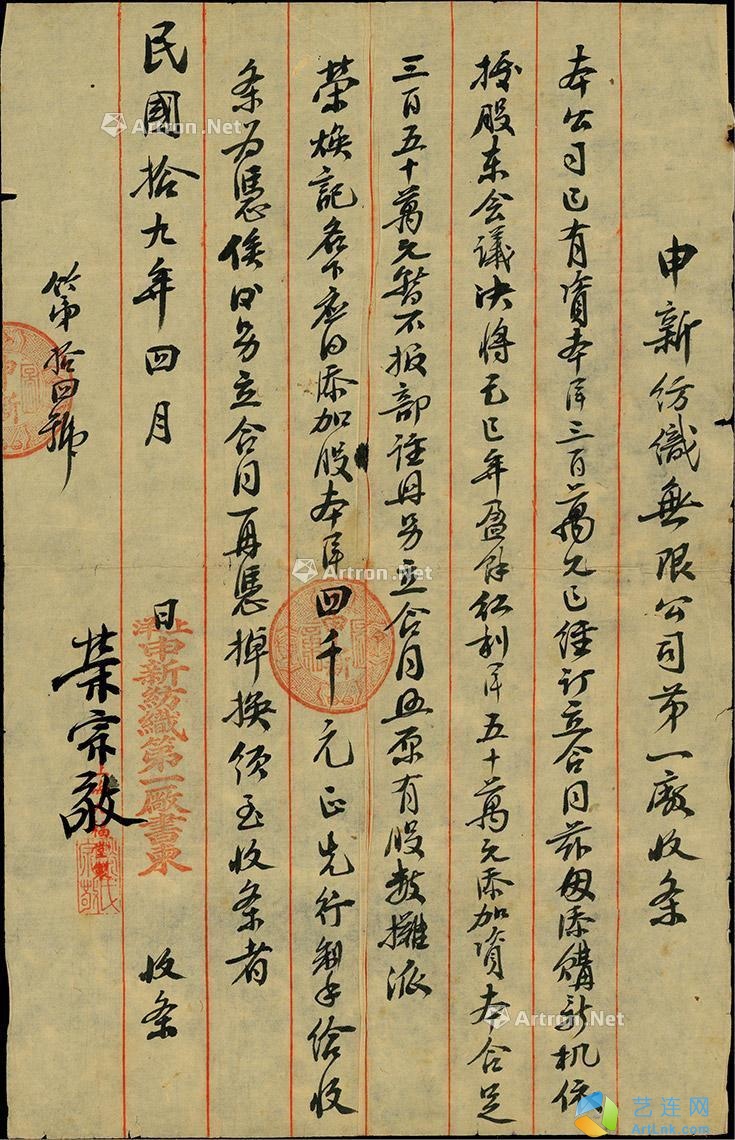 申新纺織無限公司第一廠收条
本公司已有資本洋三百萬元已經訂立合同茲因添購新机依
據股东会議决將己巳年盈餘红利洋五十萬元添加資本合足
三百五十萬元暂不报部註冊另立合同与原有股数攤派
荣焕記名下应得添加股本洋四千元正先行缮给收
条为憑俟日另立合同再憑掉换须至收条者
民國拾九年四月 日 收条
荣宗敬
上海申新紡織第一廠書柬
第拾四號
Artron.Net
Artron.Net
Artron.Net
Artron.Net
艺连网
ArtLnk.com